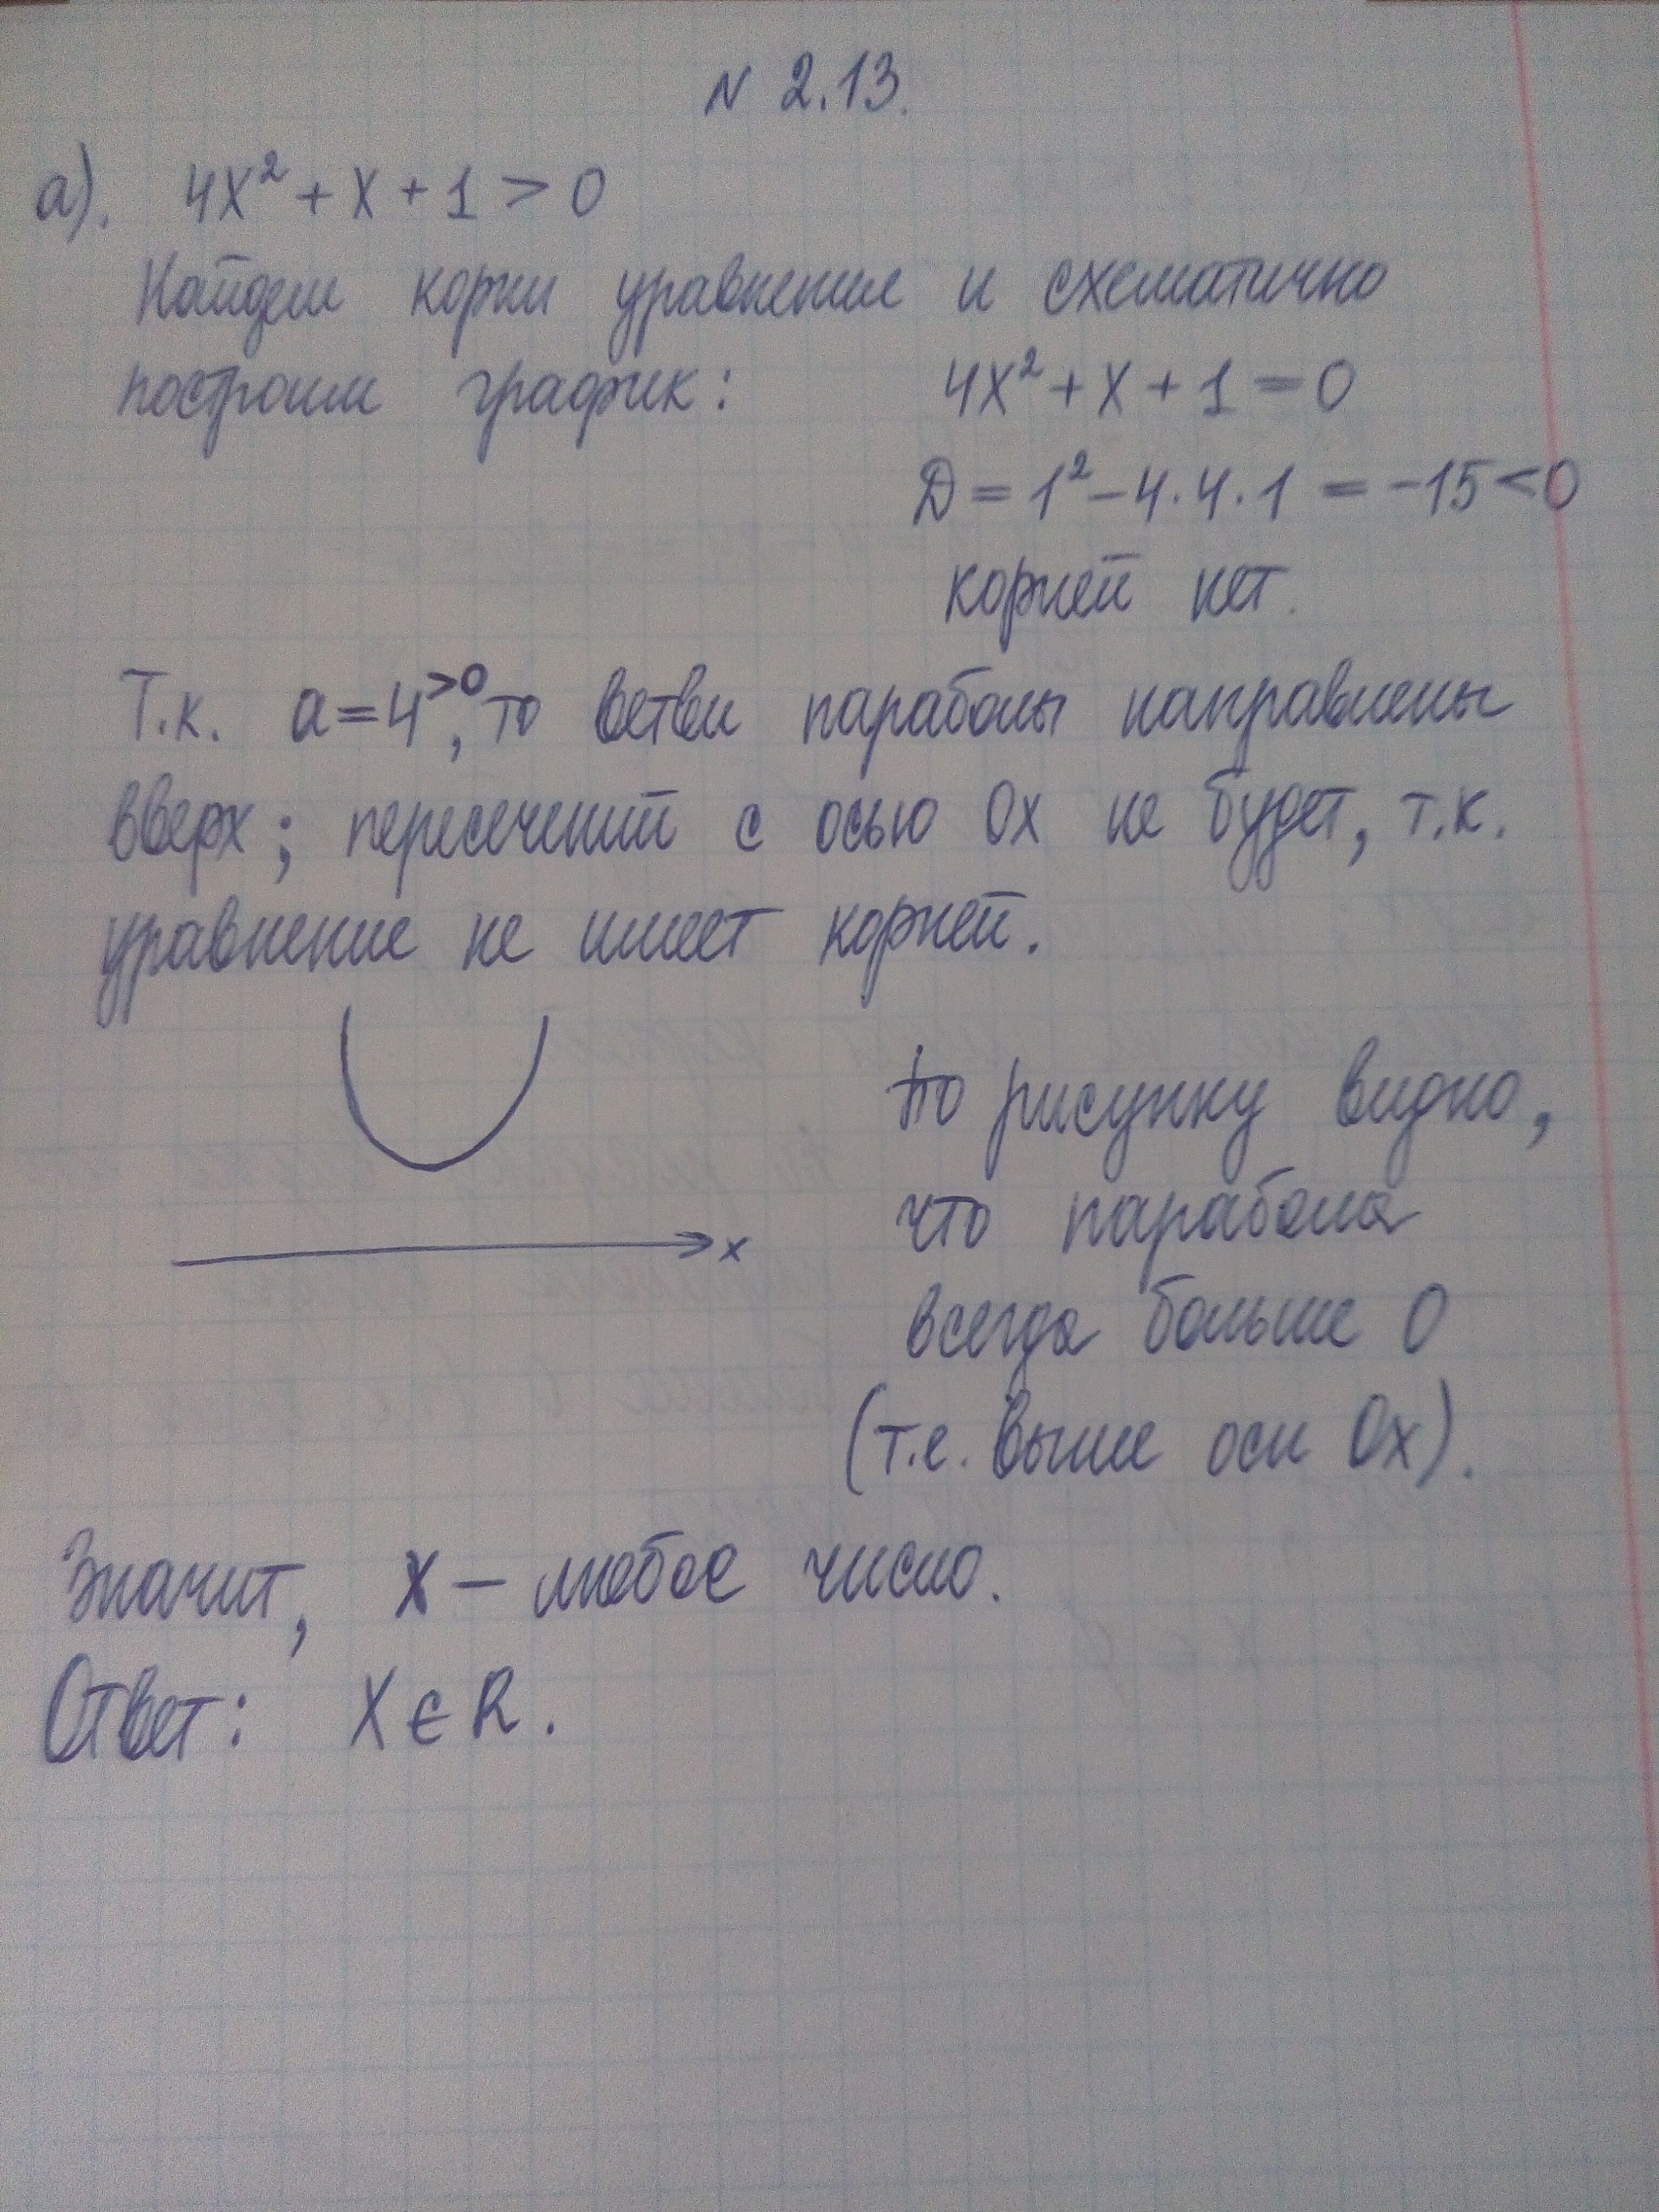 N 2.13.
а). 4x² + x + 1 > 0
Найдем корни уравнения и схематично
построим график: 4x² + x + 1 = 0
D = 1² – 4 · 4 · 1 = -15 < 0
корней нет.
Т.к. a = 4 >0, то ветви параболы направлены
вверх; пересечений с осью Ox не будет, т.к.
уравнение не имеет корней.
По рисунку видно,
что парабола
всегда больше 0
(т.е. выше оси Ox).
x
Значит, x – любое число.
Ответ: x ∈ R.